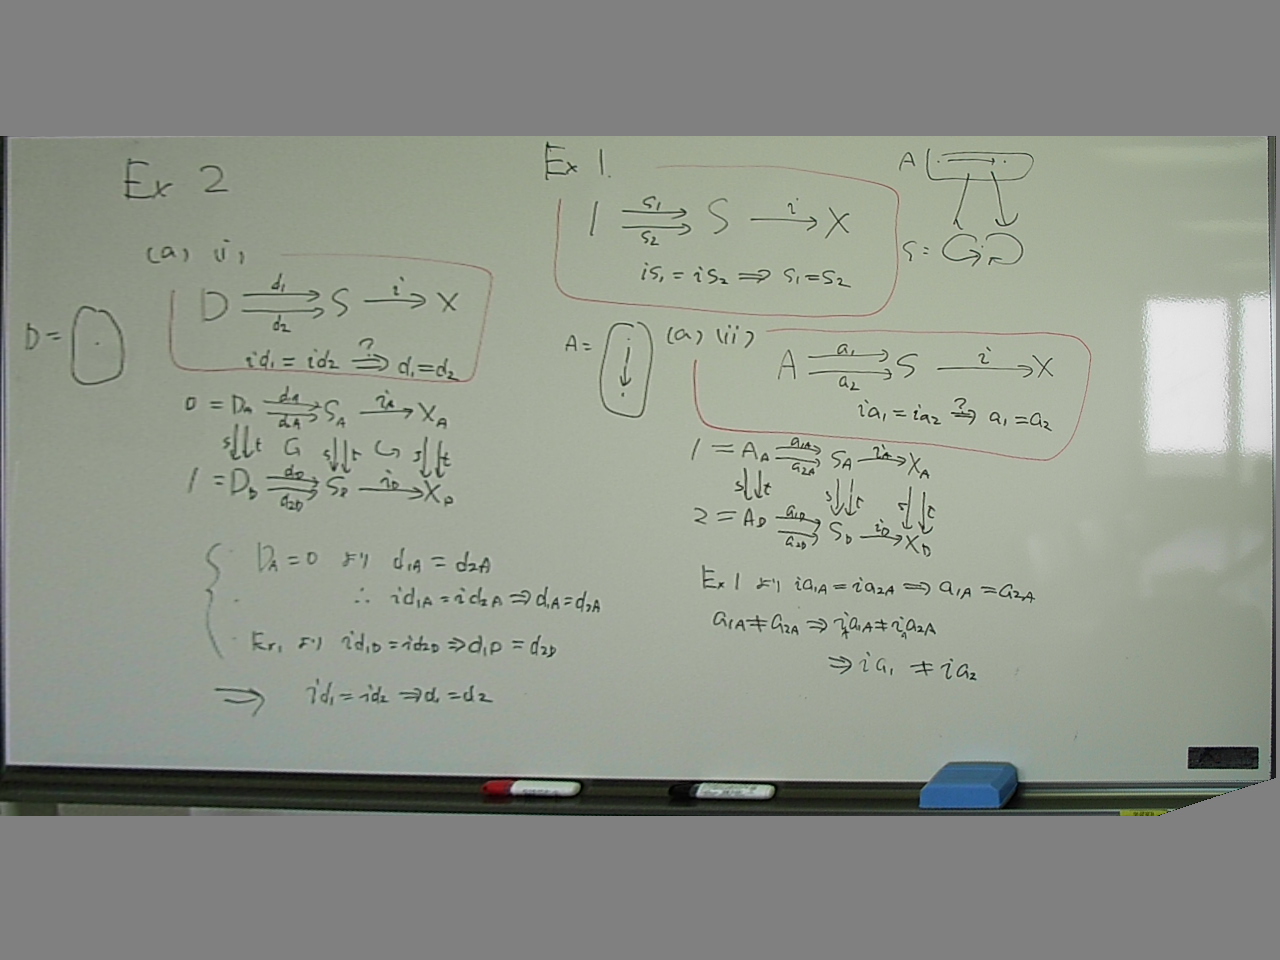 Ex 2
(a) (i)
D = ·
D d₁ d₂ S i X
id₁ = id₂ ?⇒ d₁ = d₂
0 = D_A S_A i_A X_A
s t G s t s t
1 = D_D S_D i_D X_D
D_A = 0 より d₁A = d₂A
∴ id₁A = id₂A ⇒ d₁A = d₂A
Ex1 より id₁D = id₂D ⇒ d₁D = d₂D
⇒ id₁ = id₂ ⇒ d₁ = d₂
Ex 1.
1 s₁ s₂ S i X
is₁ = is₂ ⇒ s₁ = s₂
A
S =
A =
(a) (ii)
A a₁ a₂ S i X
ia₁ = ia₂ ?⇒ a₁ = a₂
1 = A_A a₁A a₂A S_A i_A X_A
s t s t s t
2 = A_D a₁D a₂D S_D i_D X_D
Ex 1 より ia₁A = ia₂A ⇒ a₁A = a₂A
a₁A ≠ a₂A ⇒ i_A a₁A ≠ i_A a₂A
⇒ ia₁ ≠ ia₂